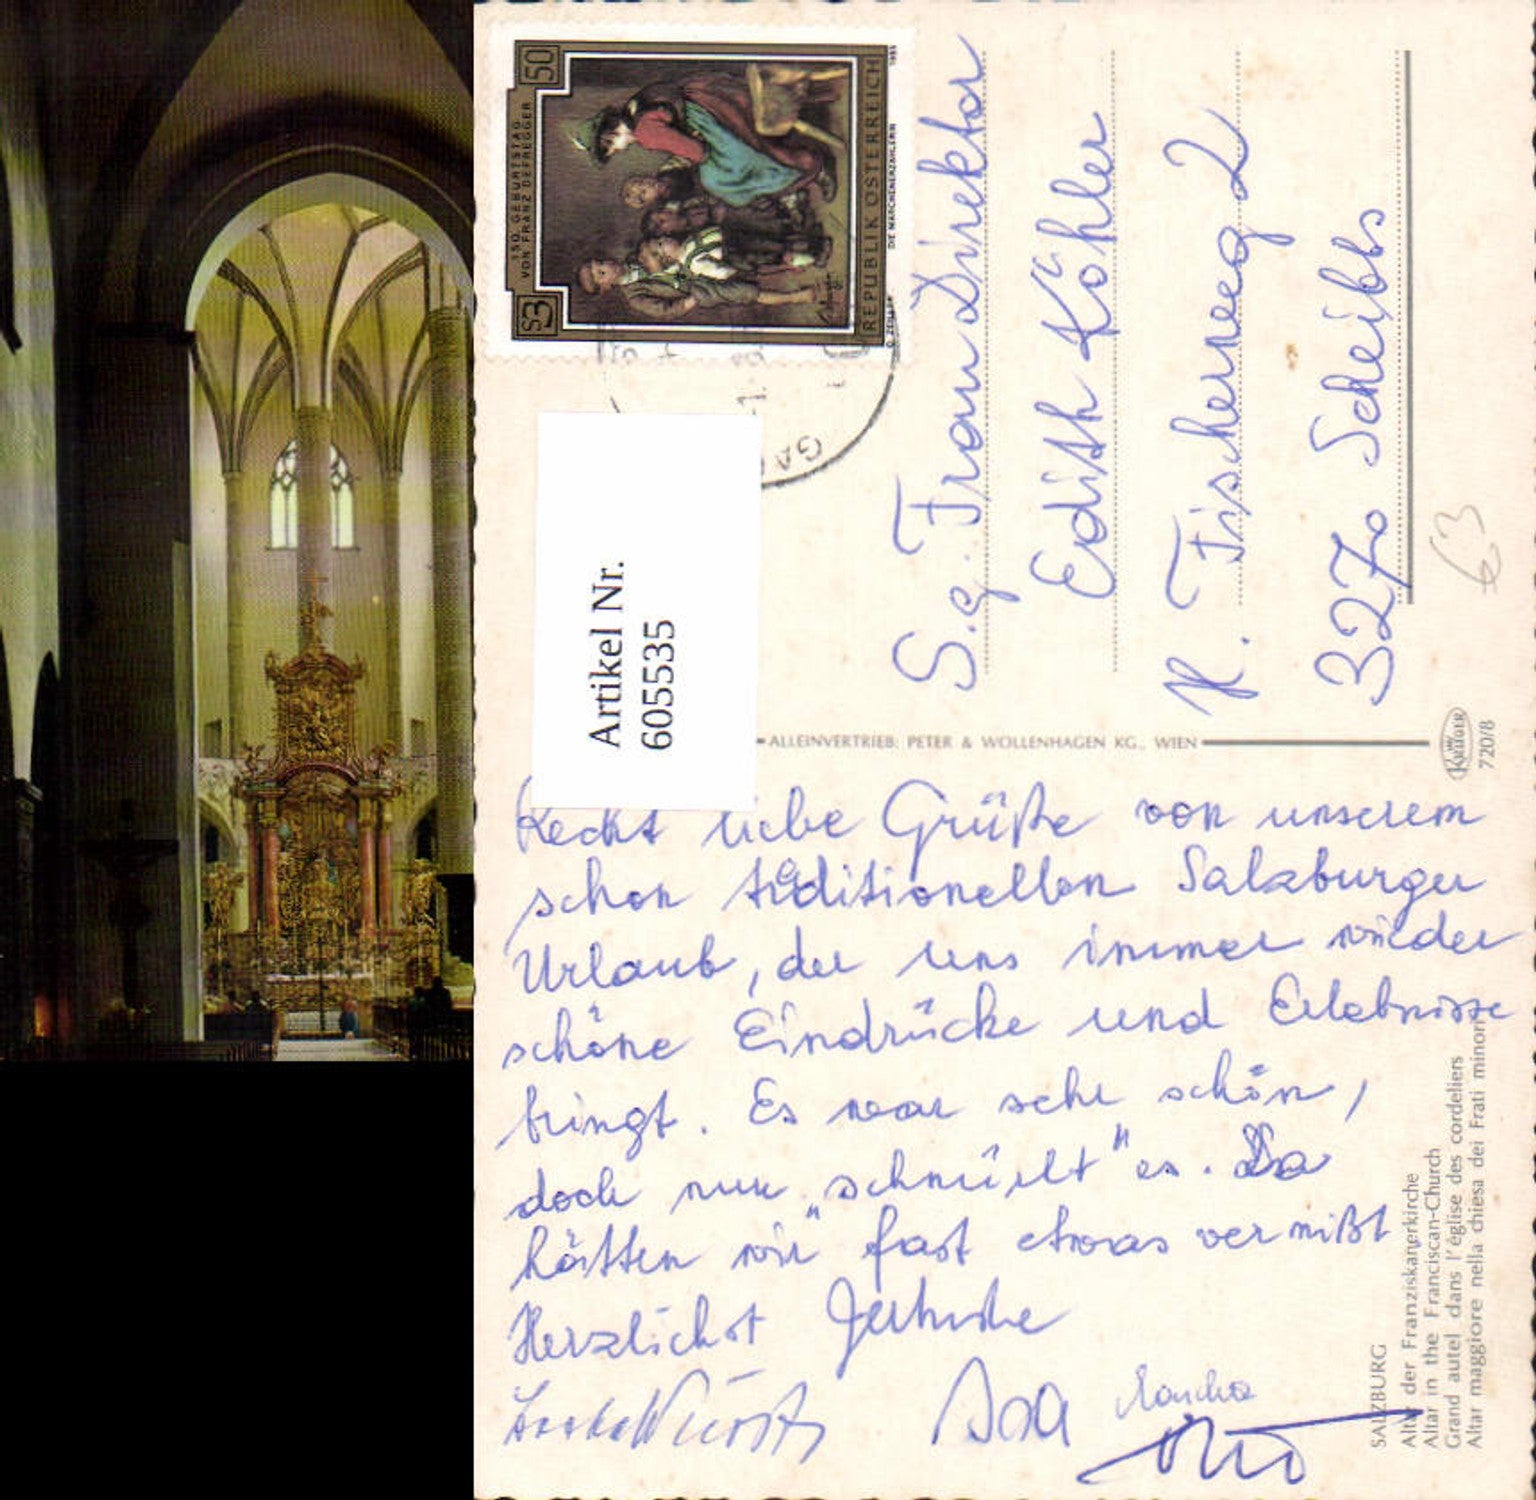 S3
50
150. GEBURTSTAG
VON FRANZ DEFREGGER
REPUBLIK ÖSTERREICH
DE MÄRCHENERZÄHLERIN
1985
Artikel Nr.
605535
S.g. Frau Direktor
Edith Köhler
H. Fischerweg 2
3270 Scheibbs
€3
ALLEINVERTRIEB: PETER & WOLLENHAGEN KG., WIEN
KRÜGER
720/8
Recht liebe Grüße von unserem
schon traditionellen Salzburger
Urlaub, der uns immer wieder
schöne Eindrücke und Erlebnisse
bringt. Es war sehr schön,
doch nun „schnürlt" es. Da
hätten wir fast etwas vermißt
Herzlichst
Otto
SALZBURG
Altar der Franziskanerkirche
Altar in the Franciscan-Church
Grand autel dans l'église des cordeliers
Altar maggiore nella chiesa dei Frati minori